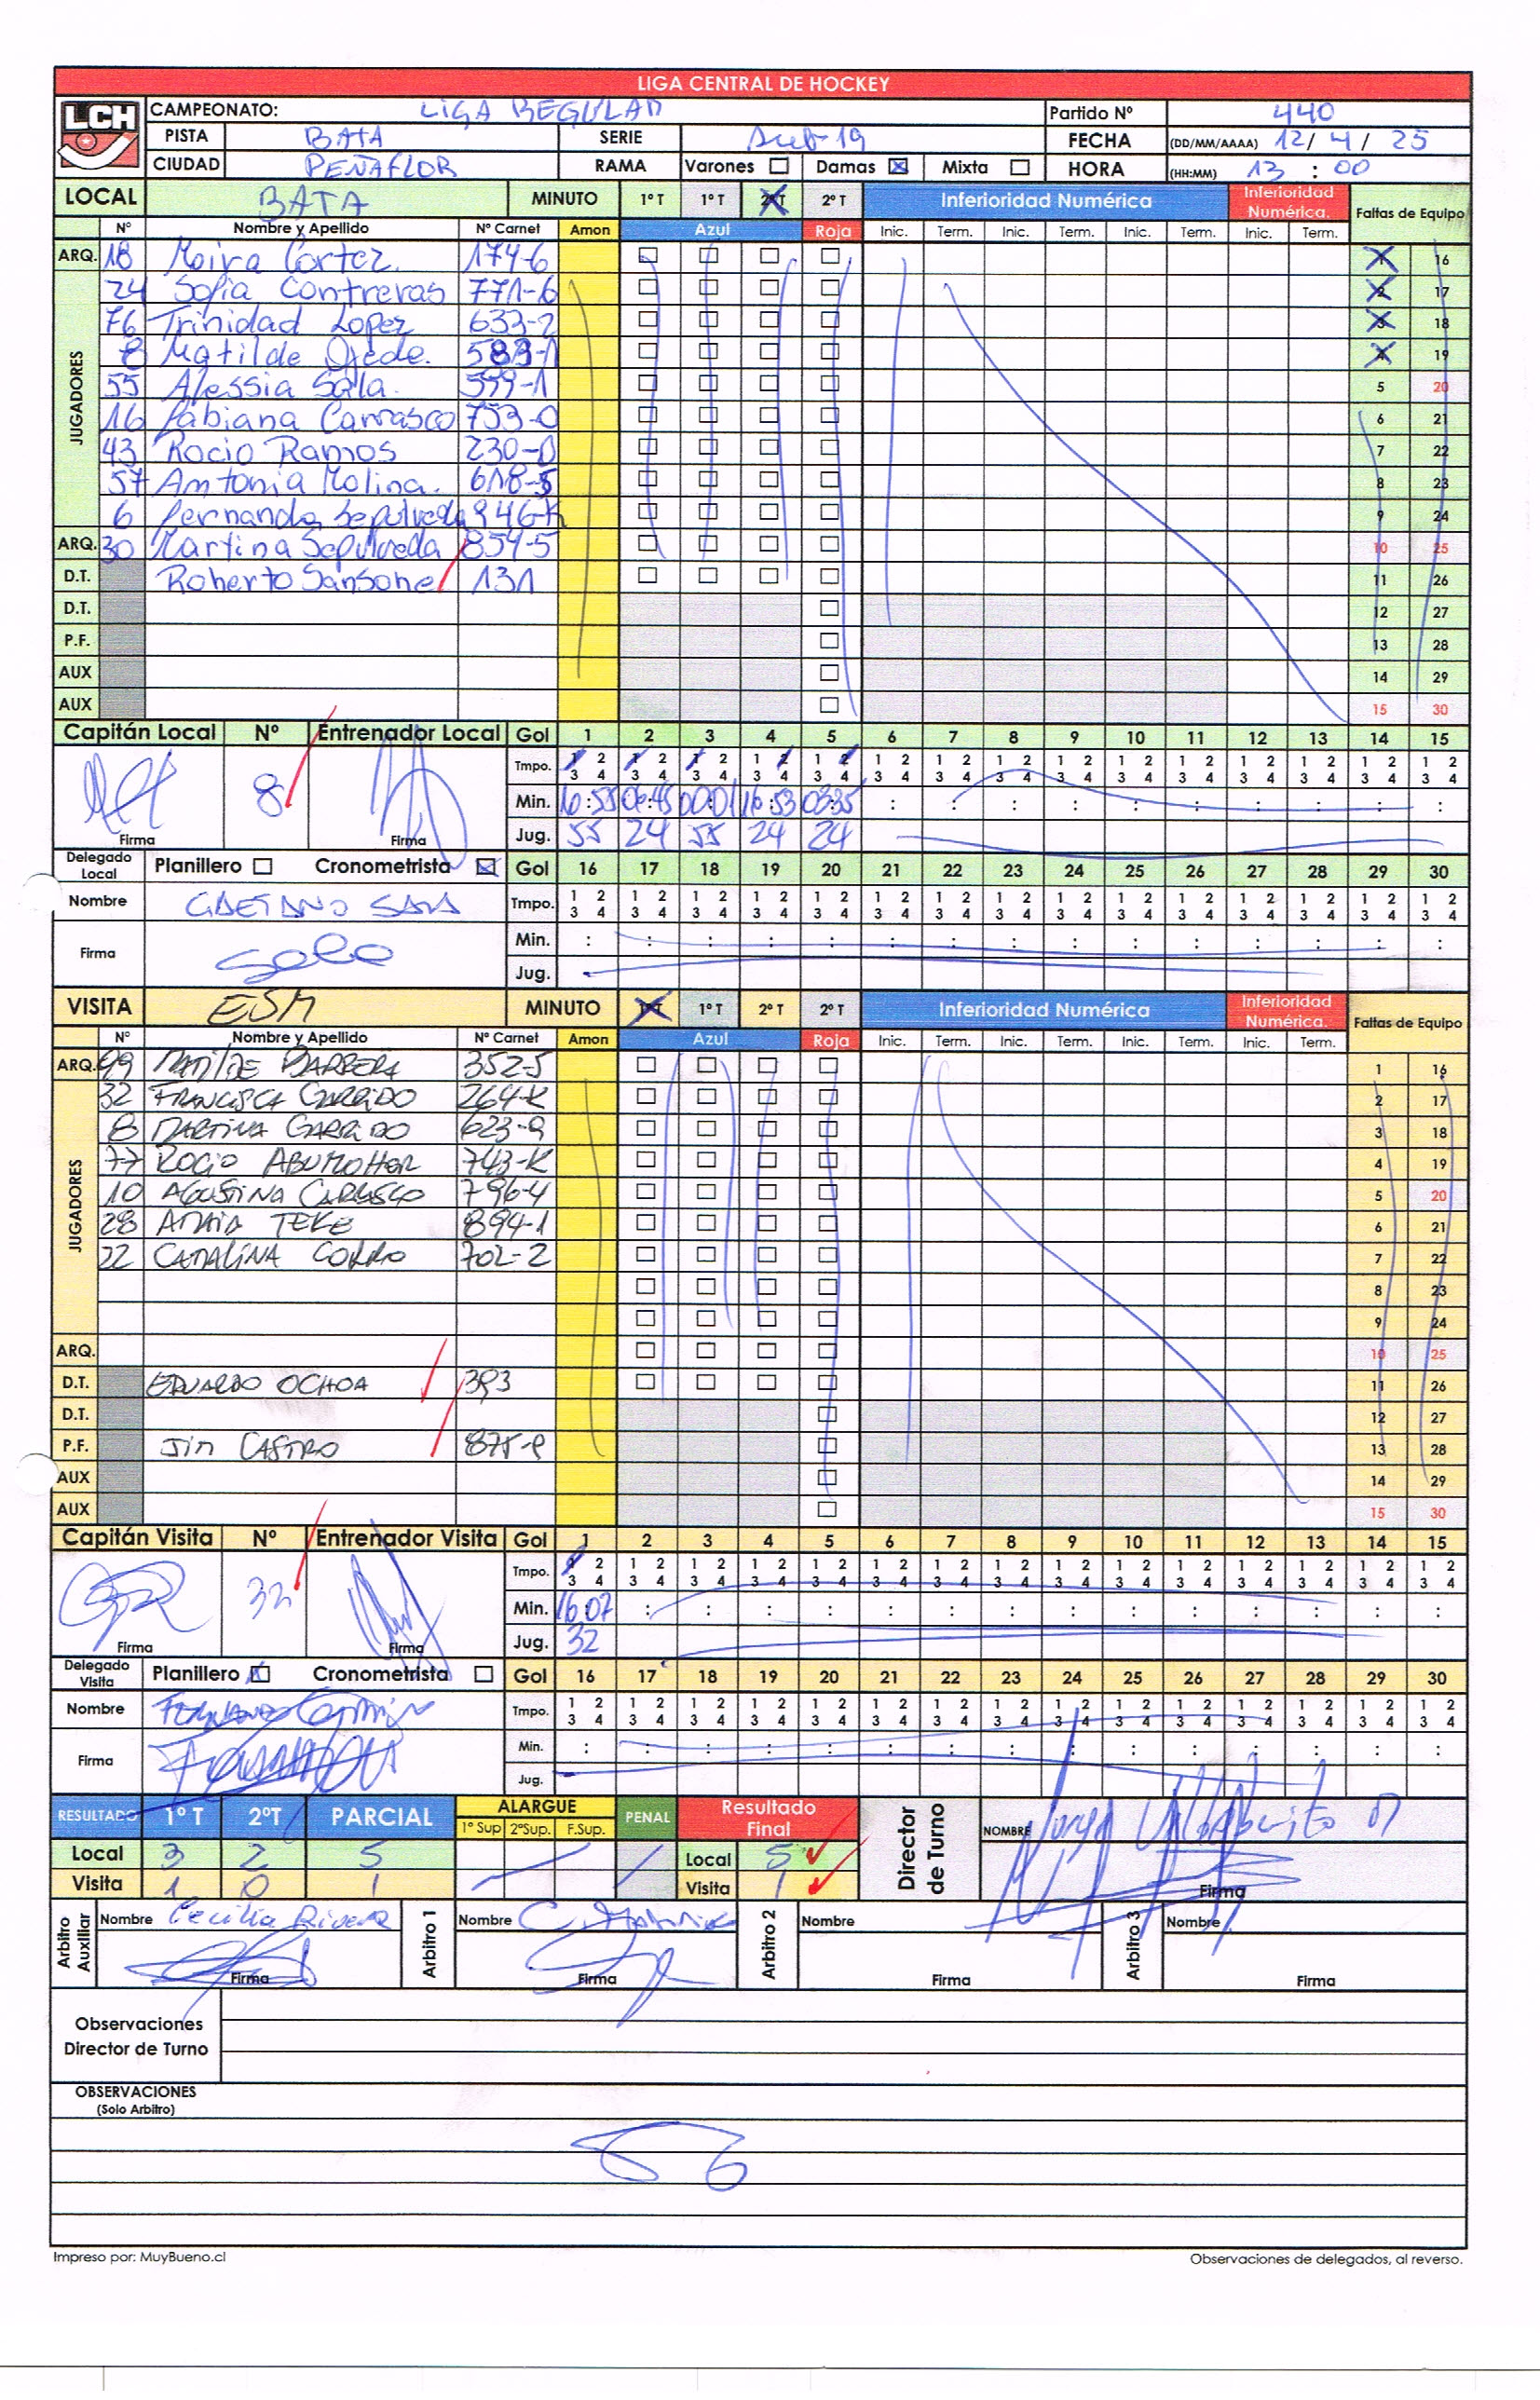 LIGA CENTRAL DE HOCKEY
LCH CAMPEONATO: LIGA REGULAR Partido Nº 440
PISTA BATA SERIE Sub-19 FECHA (DD/MM/AAAA) 12/ 4 / 25
CIUDAD PEÑAFLOR RAMA Varones Damas Mixta HORA (HH:MM) 13 : 00
LOCAL BATA MINUTO 1º T 1º T 2º T 2º T Inferioridad Numérica Inferioridad Numérica. Faltas de Equipo
Nº Nombre y Apellido Nº Carnet Amon Azul Roja Inic. Term. Inic. Term. Inic. Term. Inic. Term.
ARQ. 18 Moira Cortez. 174-6 1 16
JUGADORES
24 Sofia Contreras 771-6 2 17
76 Trinidad Lopez 633-2 3 18
8 Matilde Ojede. 583-1 4 19
55 Alessia Sala. 599-1 5 20
16 Fabiana Carrasco 753-0 6 21
43 Rocio Ramos 230-0 7 22
57 Antonia Molina. 618-5 8 23
6 Fernanda Sepulveda 946-K 9 24
ARQ. 30 Martina Sepulveda 859-5 10 25
D.T. Roberto Sansone 131 11 26
D.T. 12 27
P.F. 13 28
AUX 14 29
AUX 15 30
Capitán Local Nº Entrenador Local Gol 1 2 3 4 5 6 7 8 9 10 11 12 13 14 15
Tmpo. 1 2 1 2 1 2 1 2 1 2 1 2 1 2 1 2 1 2 1 2 1 2 1 2 1 2 1 2 1 2
3 4 3 4 3 4 3 4 3 4 3 4 3 4 3 4 3 4 3 4 3 4 3 4 3 4 3 4 3 4
8 Min. 16:55 06:45 00:01 16:53 03:35 : : : : : : : : : :
Firma Firma Jug. 55 24 55 24 24
Delegado Local Planillero Cronometrista Gol 16 17 18 19 20 21 22 23 24 25 26 27 28 29 30
Nombre GAETANO SALA Tmpo. 1 2 1 2 1 2 1 2 1 2 1 2 1 2 1 2 1 2 1 2 1 2 1 2 1 2 1 2 1 2
3 4 3 4 3 4 3 4 3 4 3 4 3 4 3 4 3 4 3 4 3 4 3 4 3 4 3 4 3 4
Firma Min. : : : : : : : : : : : : : : :
Jug.
VISITA ESM MINUTO 1º T 1º T 2º T 2º T Inferioridad Numérica Inferioridad Numérica. Faltas de Equipo
Nº Nombre y Apellido Nº Carnet Amon Azul Roja Inic. Term. Inic. Term. Inic. Term. Inic. Term.
ARQ. 99 MATILDE BARRERA 352-5 1 16
JUGADORES
32 FRANCISCA GARRIDO 264-K 2 17
8 MARTINA GARRIDO 623-9 3 18
77 ROCIO ABUMOHOR 743-K 4 19
10 AGUSTINA CARRASCO 796-4 5 20
28 AMAIA TEKE 894-1 6 21
22 CATALINA CORRO 702-2 7 22
8 23
9 24
ARQ. 10 25
D.T. EDUARDO OCHOA 393 11 26
D.T. 12 27
P.F. Jim CASTRO 875-9 13 28
AUX 14 29
AUX 15 30
Capitán Visita Nº Entrenador Visita Gol 1 2 3 4 5 6 7 8 9 10 11 12 13 14 15
Tmpo. 1 2 1 2 1 2 1 2 1 2 1 2 1 2 1 2 1 2 1 2 1 2 1 2 1 2 1 2 1 2
3 4 3 4 3 4 3 4 3 4 3 4 3 4 3 4 3 4 3 4 3 4 3 4 3 4 3 4 3 4
32 Min. 16:07 : : : : : : : : : : : : : :
Firma Firma Jug. 32
Delegado Visita Planillero Cronometrista Gol 16 17 18 19 20 21 22 23 24 25 26 27 28 29 30
Nombre Tmpo. 1 2 1 2 1 2 1 2 1 2 1 2 1 2 1 2 1 2 1 2 1 2 1 2 1 2 1 2 1 2
3 4 3 4 3 4 3 4 3 4 3 4 3 4 3 4 3 4 3 4 3 4 3 4 3 4 3 4 3 4
Firma Min. : : : : : : : : : : : : : : :
Jug.
RESULTADO 1º T 2ºT PARCIAL ALARGUE PENAL Resultado Final Director de Turno NOMBRE
1º Sup 2ºSup. F.Sup.
Local 3 2 5 Local 5
Visita 1 0 1 Visita 1 Firma
Arbitro Auxiliar Nombre Cecilia Rivera Arbitro 1 Nombre Arbitro 2 Nombre Arbitro 3 Nombre
Firma Firma Firma Firma
Observaciones
Director de Turno
OBSERVACIONES
(Solo Arbitro)
Impreso por: MuyBueno.cl Observaciones de delegados, al reverso.